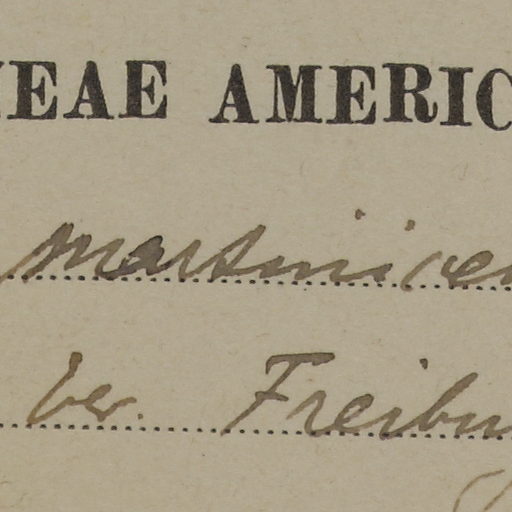 EAE AMERIC
martinicen
ber. Freibu